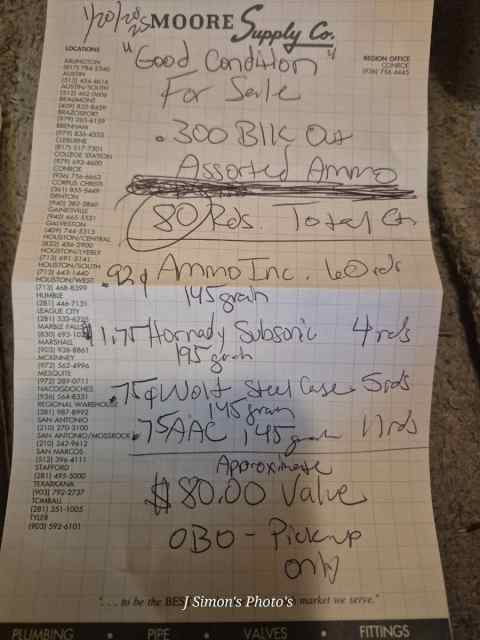 1/20/2025
MOORE Supply Co.
LOCATIONS
ARLINGTON
(817) 784-2340
AUSTIN
(512) 454-4616
AUSTIN/SOUTH
(512) 462-0606
BEAUMONT
(409) 832-8459
BRAZOSPORT
(979) 265-6159
BRENHAM
(979) 836-4555
CLEBURNE
(817) 517-7301
COLLEGE STATION
(979) 693-4600
CONROE
(936) 756-6663
CORPUS CHRISTI
(361) 855-5449
DENTON
(940) 382-2860
GAINESVILLE
(940) 665-5531
GALVESTON
(409) 744-5313
HOUSTON/CENTRAL
(832) 456-2900
HOUSTON/LYERLY
(713) 691-3141
HOUSTON/SOUTH
(713) 443-1440
HOUSTON/WEST
(713) 468-8399
HUMBLE
(281) 446-7131
LEAGUE CITY
(281) 332-6225
MARBLE FALLS
(830) 693-
MARSHALL
(903) 938-8861
MCKINNEY
(972) 562-4996
MESQUITE
(972) 289-0711
NACOGDOCHES
(936) 564-8331
REGIONAL WAREHOUSE
(281) 987-8992
SAN ANTONIO
(210) 270-3100
SAN ANTONIO/MOSSROCK
(210) 342-9612
SAN MARCOS
(512) 396-4111
STAFFORD
(281) 495-5000
TEXARKANA
(903) 792-2737
TOMBALL
(281) 351-1005
TYLER
(903) 592-6101
REGION OFFICE
CONROE
(936) 756-4445
"Good Condition"
For Sale
.300 Blk Out
Assorted Ammo
80 Rds. Total Ct
.92¢ Ammo Inc. 60 rds
145 grain
$1.75 Hornady Subsonic 4 rds
195 grain
.75¢ Wolf Steel Case 5 rds
145 grain
.75 AAC 145 grain 11 rds
Approximate
$80.00 Value
OBO - Pickup
only
"... to be the BEST market we serve."
J Simon's Photo's
PLUMBING • PIPE • VALVES • FITTINGS